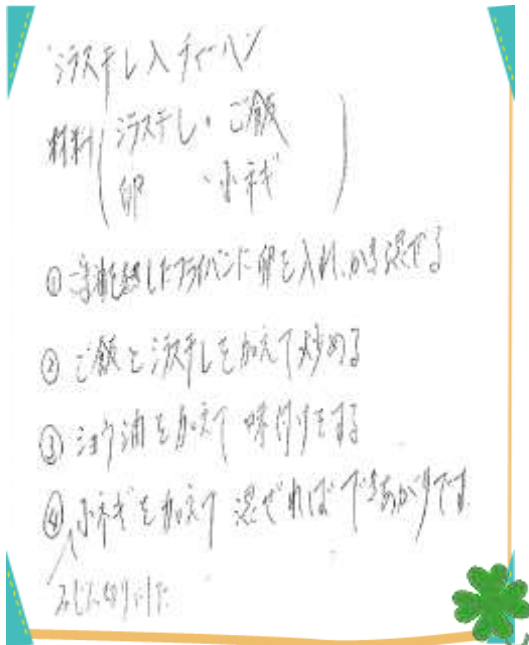 シラス干し入チャーハン
材料(シラス干し・ご飯
卵 ・小ネギ)
① ごま油を熱したフライパンに卵を入れ、かき混ぜる
② ご飯とシラス干しを加えて炒める
③ ショウ油を加えて味付けをする
④ 小ネギを加えて混ぜればできあがりです
みじん切りにした